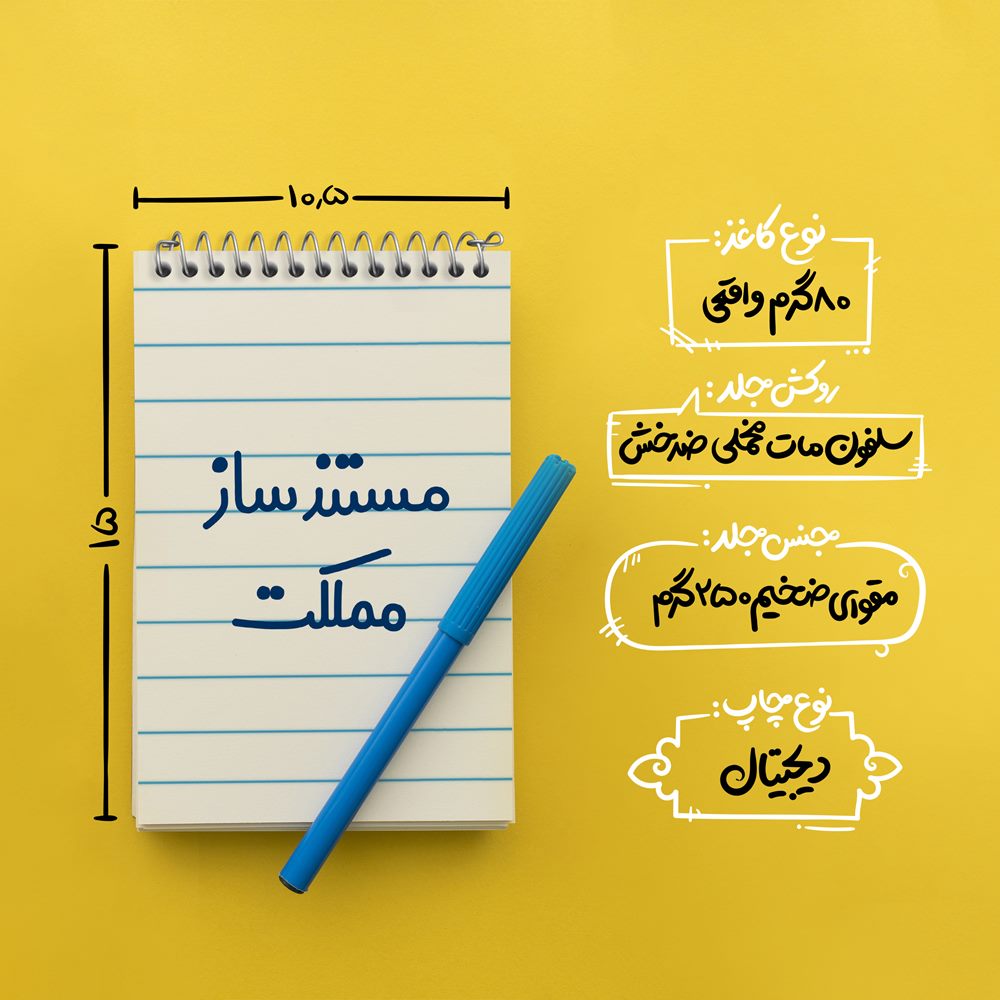 ۱۰,۵
۱۵
مستند ساز
مملکت
نوع کاغذ:
۸۰ گرم واقعی
روکش جلد:
سلفون مات مخملی ضدخش
جنس جلد:
مقوای ضخیم ۲۵۰ گرم
نوع چاپ:
دیجیتال